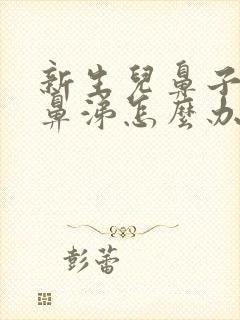 新生兒鼻子
鼻涕怎麼办
彭蕾